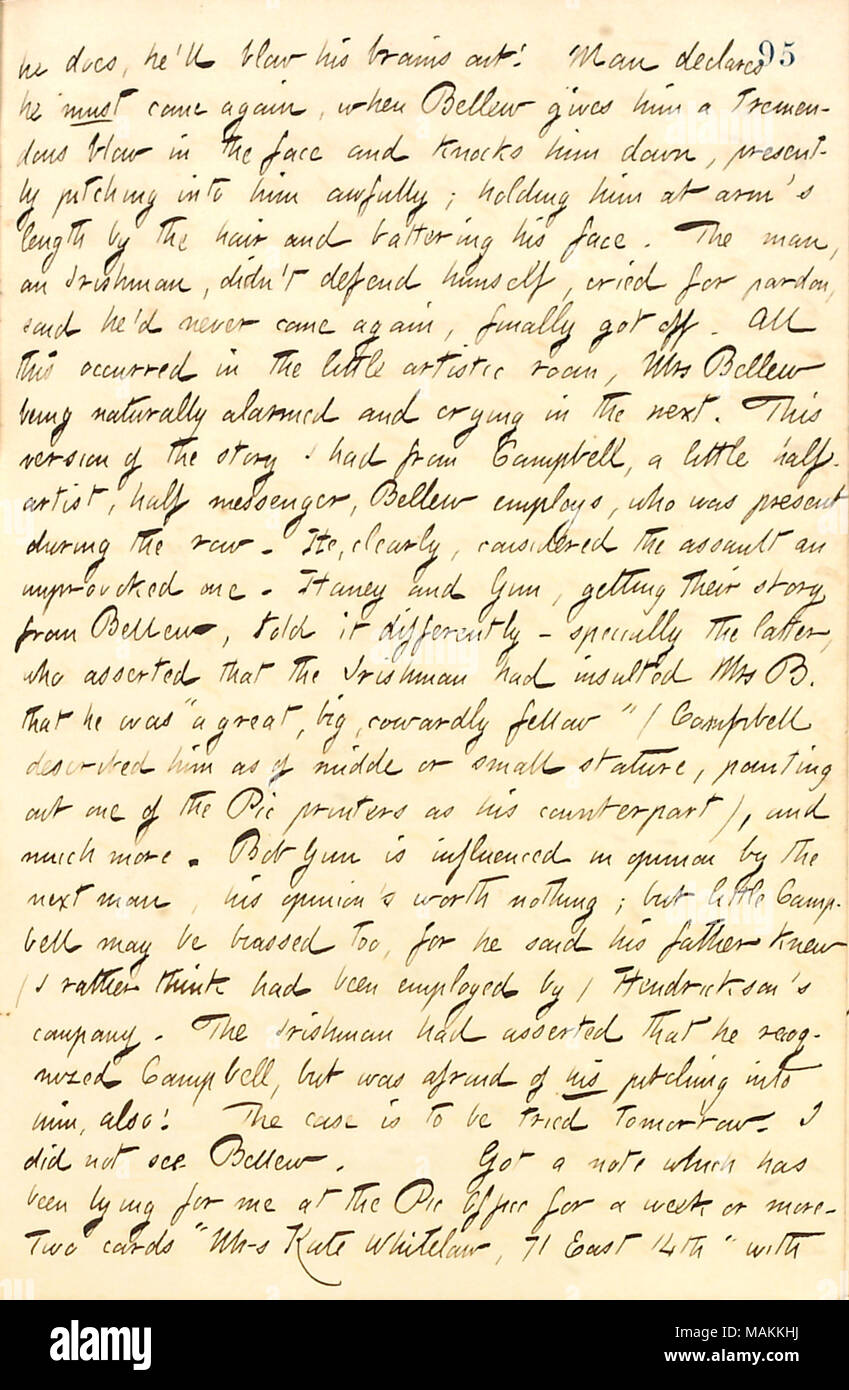 95
he does, he'll blow his brains out! Man declares
he must come again, when Bellew gives him a tremen-
dous blow in the face and knocks him down, present-
ly pitching into him awfully; holding him at arm's
length by the hair and battering his face. The man,
an Irishman, didn't defend himself, cried for pardon,
said he'd never come again, finally got off. All
this occurred in the little artistic room, Mrs Bellew
being naturally alarmed and crying in the next. This
version of the story I had from Campbell, a little half-
artist, half messenger, Bellew employs, who was present
during the row. He, clearly, considered the assault an
unprovoked one. Haney and Gun, getting their story
from Bellew, told it differently - specially the latter,
who asserted that the Irishman had insulted Mrs B.
that he was "a great, big, cowardly fellow" (Campbell
described him as of midde or small stature, pointing
out one of the Pic printers as his counterpart), and
much more. Bob Gun is influenced in opinion by the
next man, his opinion's worth nothing; but little Camp-
bell may be biassed too, for he said his father knew
(I rather think had been employed by) Hendrickson's
company. The Irishman had asserted that he recog-
nized Campbell, but was afraid of his pitching into
him, also! The case is to be tried tomorrow. I
did not see Bellew. Got a note which has
been lying for me at the Pic Office for a week or more.
Two cards "Mrs Kate Whitelaw, 71 East 14th" with
alamy
Image ID: MAKKHJ
www.alamy.com